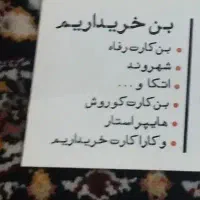 بن خریداریم
بن کارت رفاه
شهروند
اتکا و ...
بن کارت کوروش
هایپر استار
و کارا کارت خریداریم